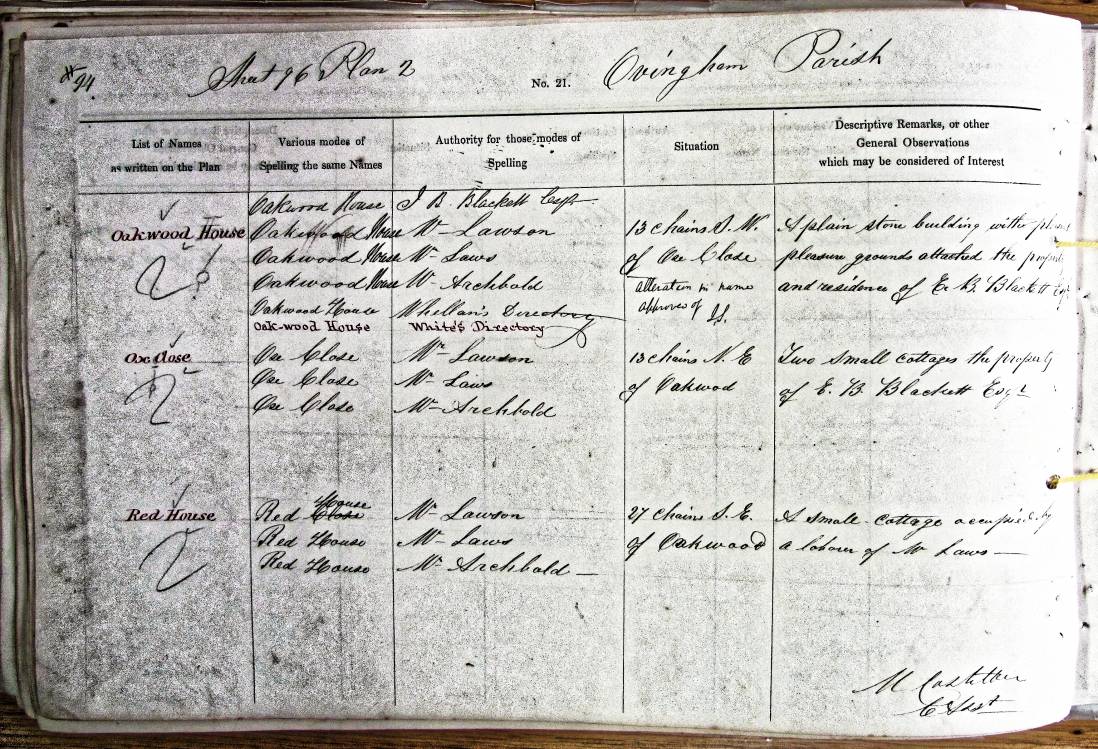 94
Sheet 96 Plan 2
No. 21.
Ovingham Parish
List of Names
as written on the Plan
Various modes of
Spelling the same Names
Authority for those modes of
Spelling
Situation
Descriptive Remarks, or other
General Observations
which may be considered of Interest
Oakwood House
Oakwood House
Oakwood House
Oakwood House
Oakwood House
Oakwood House
Oak-wood House
J B. Blackett Esqr
Mr Lawson
Mr Laws
Mr Archbold
Whellan's Directory
White's Directory
13 chains S. W.
of Ox Close
alteration in name
approved of
A plain stone building with
pleasure grounds attached the property
and residence of E. B. Blackett Esqr
Ox Close
Ox Close
Ox Close
Ox Close
Mr Lawson
Mr Laws
Mr Archbold
13 chains N. E
of Oakwood
Two small cottages the property
of E. B. Blackett Esqr
Red House
Red Close House
Red House
Red House
Mr Lawson
Mr Laws
Mr Archbold
27 chains S. E.
of Oakwood
A small cottage occupied by
a labour of Mr Laws